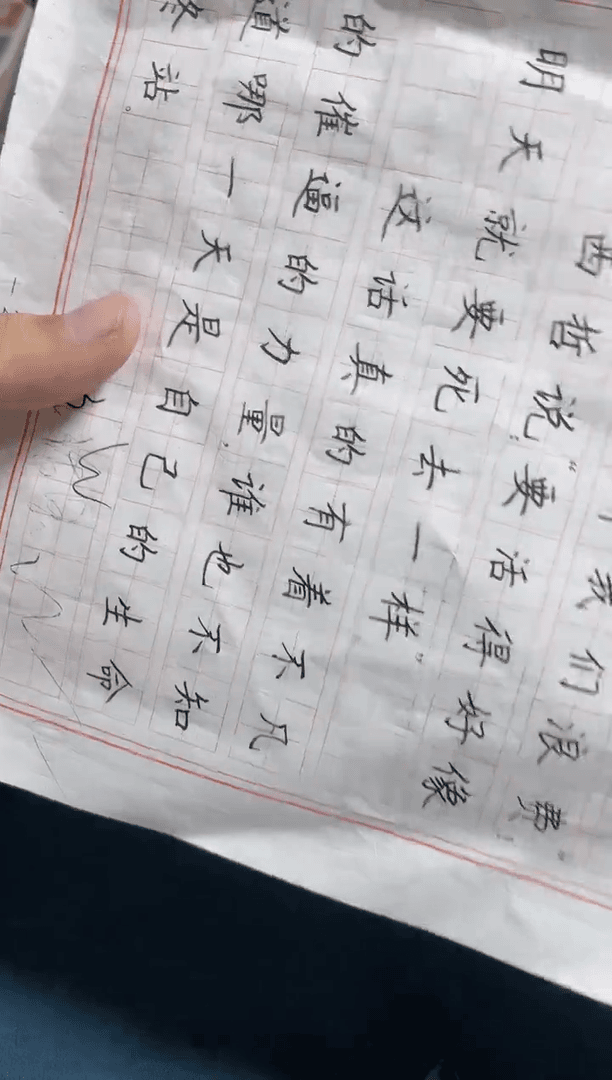 我们浪费”
西哲说:“要活得好像
明天就要死去一样”
这话真的有着不凡
的催逼的力量,谁也不知
道哪一天是自己的生命
终站。